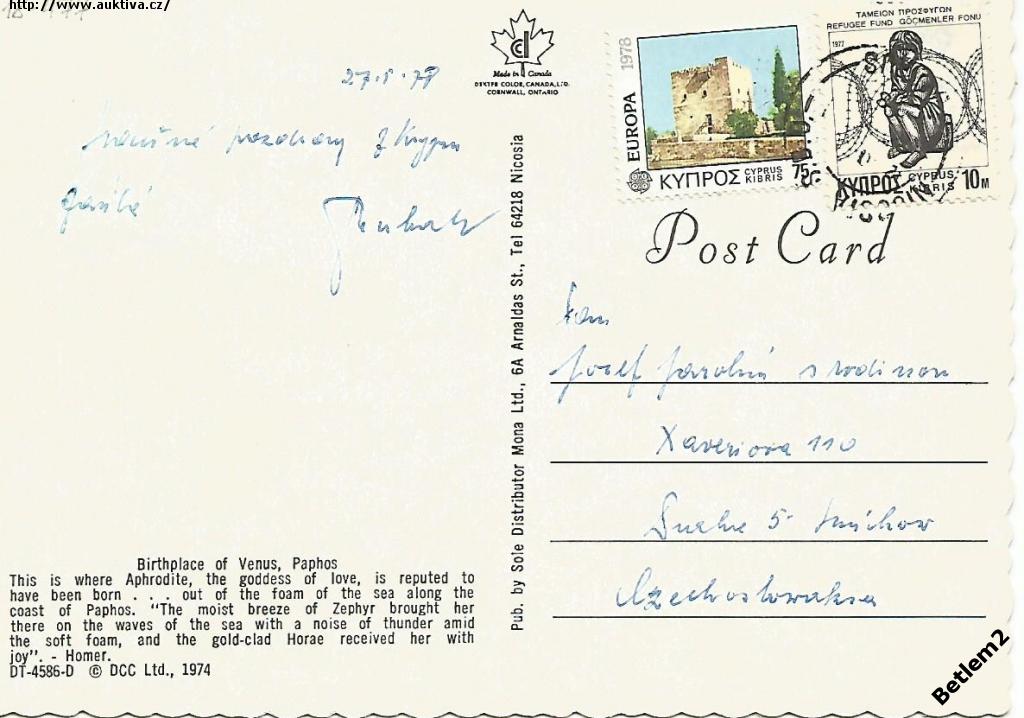 http://www.auktiva.cz/
27.5.78
pozdravy z Kypru
Made in Canada
DEXTER COLOR, CANADA, LTD.
CORNWALL, ONTARIO
1978
EUROPA
ΚΥΠΡΟΣ CYPRUS KIBRIS 75
ΤΑΜΕΙΟΝ ΠΡΟΣΦΥΓΩΝ
REFUGEE FUND GÖÇMENLER FONU
1977
ΚΥΠΡΟΣ CYPRUS KIBRIS 10M
Post Card
Josef s rodinou
Xaveriova 110
5 Smíchov
Czechoslowaksa
Pub. by Sole Distributor Mona Ltd., 6A Arnaldas St., Tel 64218 Nicosia
Birthplace of Venus, Paphos
This is where Aphrodite, the goddess of love, is reputed to
have been born . . . out of the foam of the sea along the
coast of Paphos. "The moist breeze of Zephyr brought her
there on the waves of the sea with a noise of thunder amid
the soft foam, and the gold-clad Horae received her with
joy". - Homer.
DT-4586-D © DCC Ltd., 1974
Betlem2